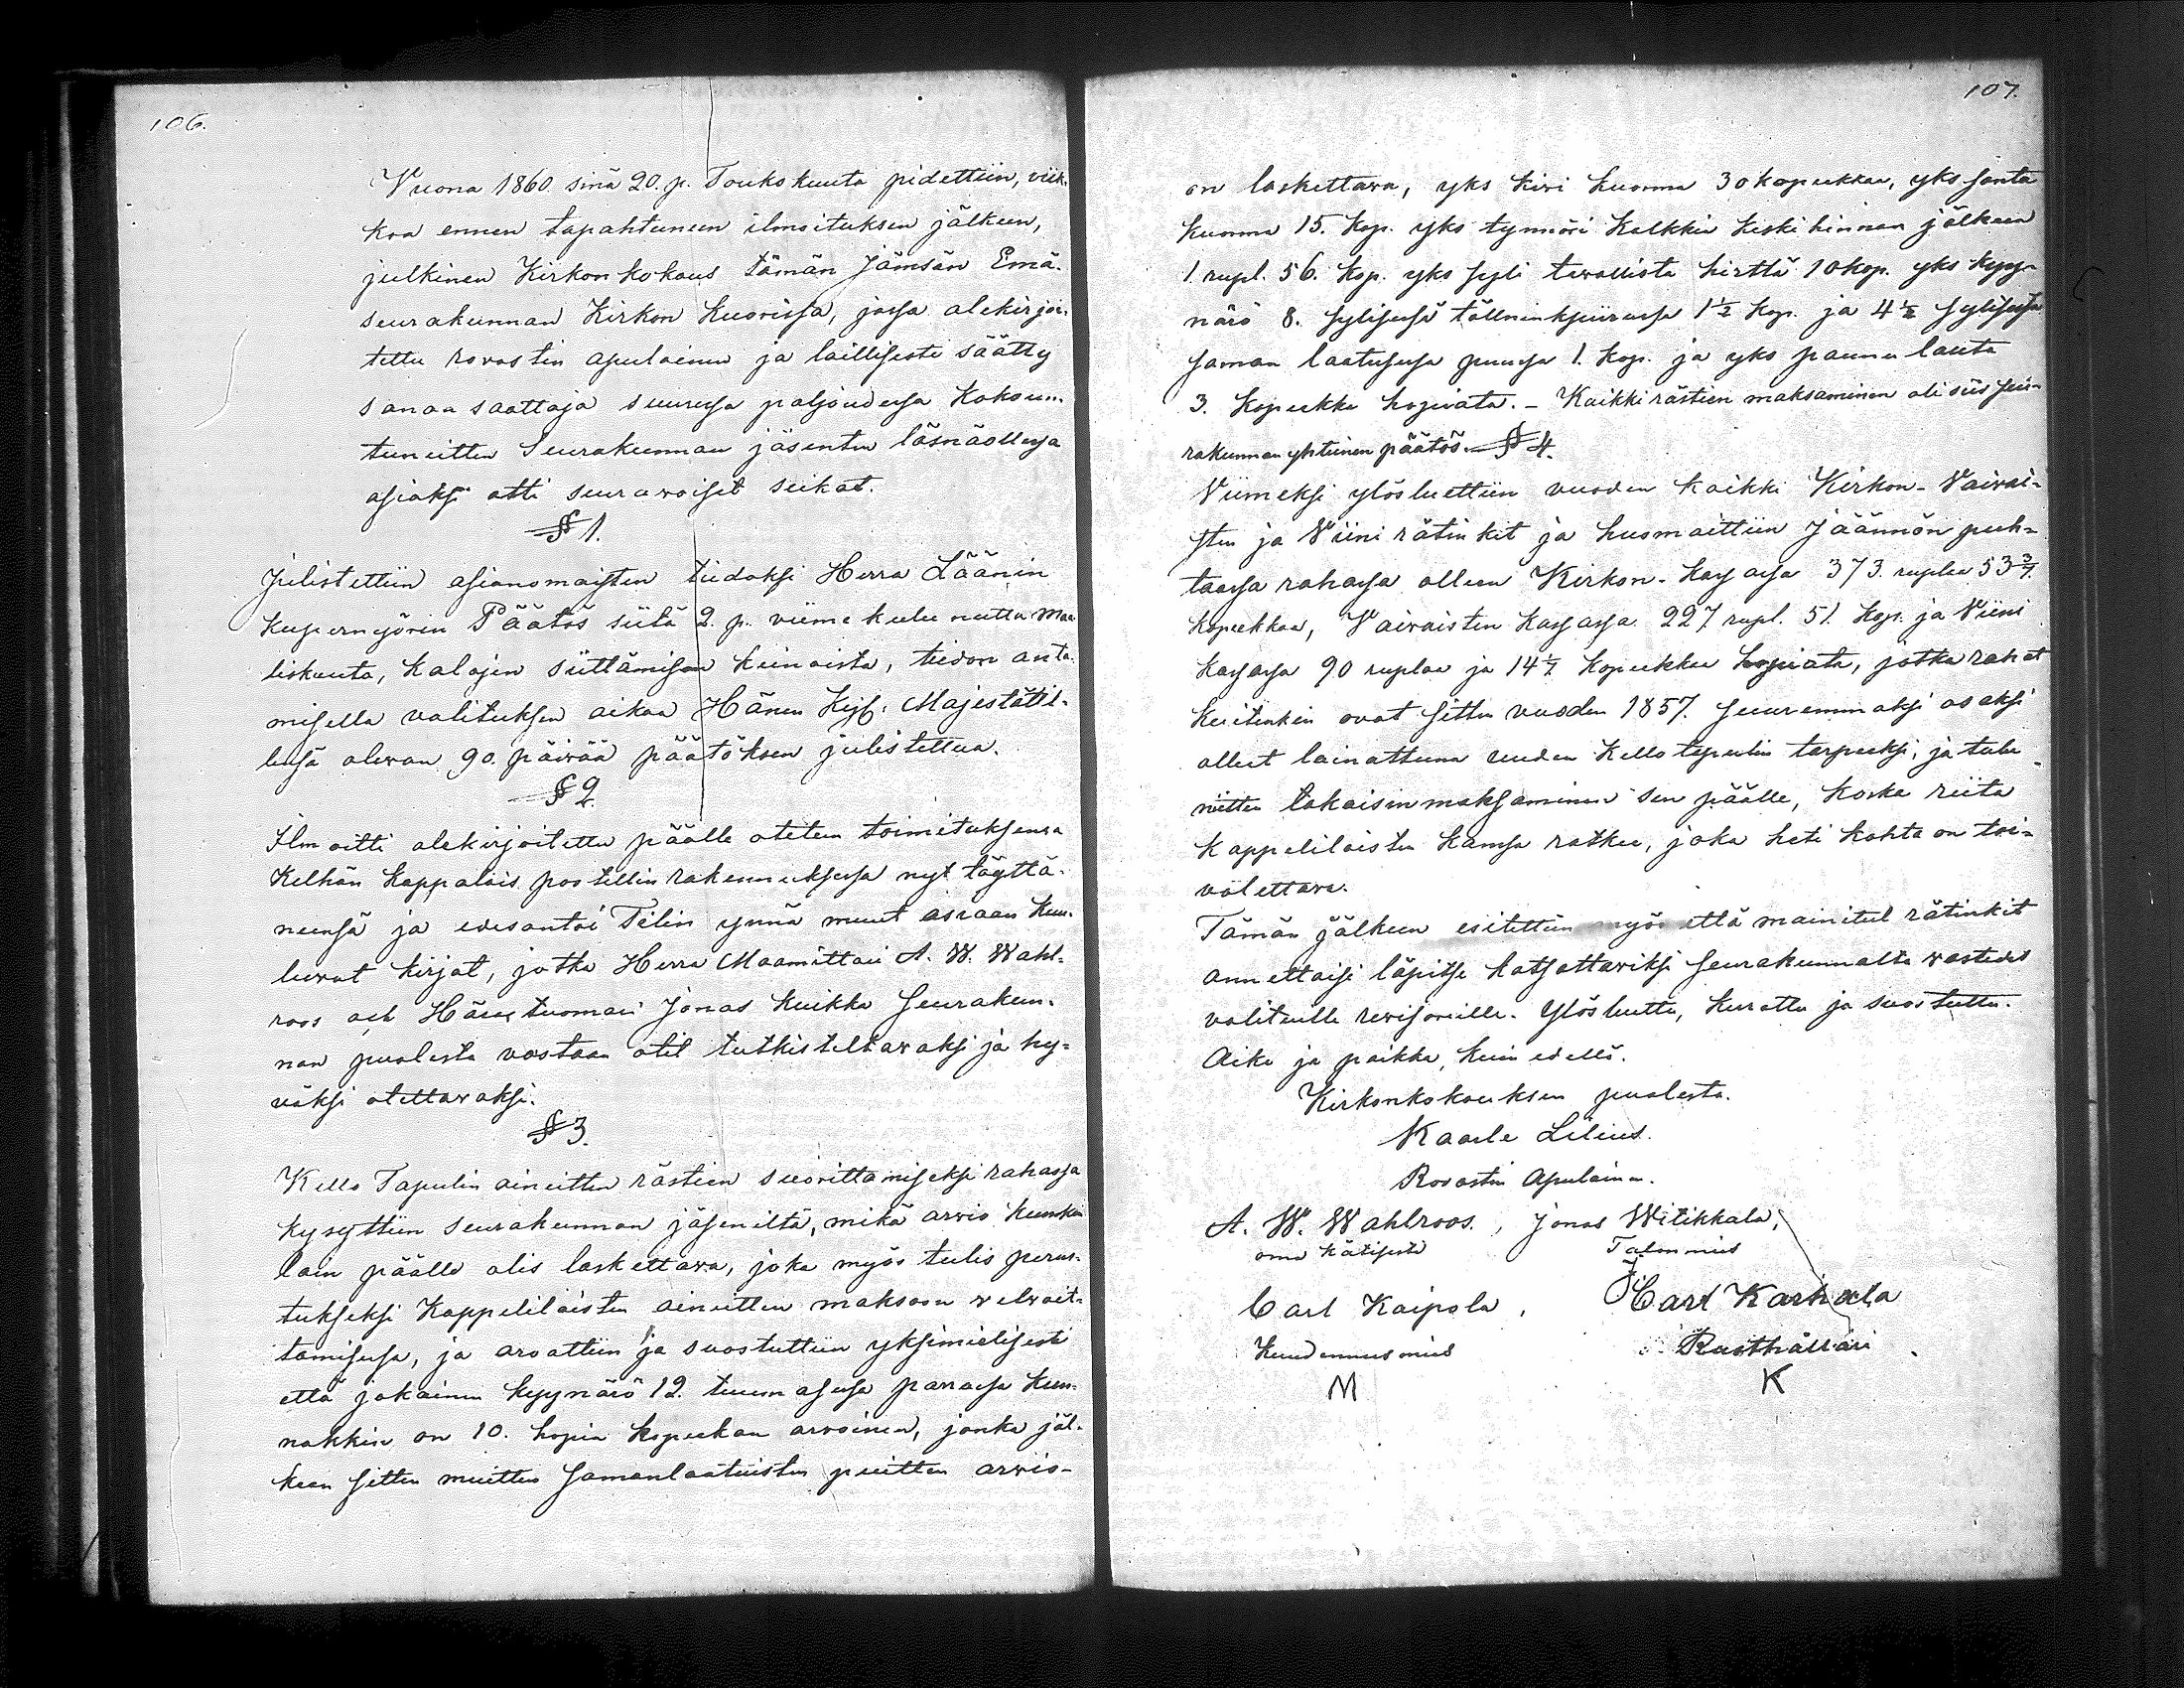 106.
Vuona 1860 sinä 20. p. Toukokuuta pidettiin, viik-
koa ennen tapahtuneen ilmoituksen jälkeen,
julkinen Kirkonkokous tämän Jämsän Emä-
seurakunnan Kirkon kuorissa, jossa alekirjoi-
tettu rovastin apulainen ja laillisesti säätty
sanan saattaja suuressa paljoudessa Kokoun-
tuneitten Seurakunnan jäsenten läsnäollessa
asiaksi otti seurawaiset seikat.
§ 1.
Julistettiin asianomaisten tiedoksi Herra Läänin
Kupernyörin Päätös siitä 2. p. viime kulunutta Maa-
liskuuta, kalojen siittämisen keinoista, tiedon anta-
misella valituksen aikaa Hänen Keis: Majestätil-
lensä olewan 90. päivää päätöksen julistettua.
§ 2.
Ilmoitti alekirjoitettu päälle otetun toimituksensa
Kelhän kappalais postellin rakennuksessa nyt täyttä-
neensä ja edesantoi Tilin ynnä muut asiaan kuu-
luwat kirjat, jotka Herra Maamittari A. W. Wahl-
roos och Härastuomari Jonas Kuikka Seurakun-
nan puolesta vastaan otit tutkisteltawaksi ja hy-
väksi otettawaksi.
§ 3.
Kello Tapulin aineitten rästien suorittamiseksi rahassa
kysyttiin seurakunnan jäseniltä, mikä arvio kunkin
lain päälle olis laskettawa, joka myös tulis perus-
tukseksi Kappeliläisten aineitten maksoon welwoit-
tamisessa, ja arvattiin ja suostuttiin yksimielisesti
että jokainen kyynärö 12. tuumasessa parrussa kun-
nakkin on 10. hopia kopeekan arvoinen, jonka jäl-
keen sitten muitten samanlaatuisten puitten arwio-
107.
on laskettawa, yks kiwi kuorma 30 kopeekkaa, yks santa
kuorma 15. kop. yks tynnöri Kalkkia keski hinnan jälkeen
1. rupl. 56. kop. yks syli tavallista hirttä 10 kop. yks kyy-
närö 8. sylisessä tällninkpiirussa 1½ kop. ja 4½ sylisessä
saman laatusessa puussa 1. kop. ja yks paanu lauta
3. kopeekka hopiata. – Kaikki rästien maksaminen oli siis seu-
rakunnan yhteinen päätös. § 4.
Viimeksi ylösluettiin vuoden kaikki Kirkon- Vaivai-
sten ja Viini rätinkit ja huomaittiin Jäännön puh-
taassa rahassa olleen Kirkon-kassassa 373. ruplaa 53 3/7.
kopeekkaa, Vaivaisten kassassa 227 rupl. 51. kop. ja Viini
kassassa 90 ruplaa ja 14½ kopeekkaa hopiata, jotka rahat
kuitenkin ovat sitten vuoden 1857. suuremmaksi osaksi
olleet lainattuna uuden Kellotapulin tarpeeksi, ja tulee
niitten takaisinmaksaminen sen päälle, koska riita
kappeliläisten kanssa ratkee, joka heti kohta on toi-
välettawa.
Tämän jälkeen esitettiin myös että mainitut rätinkit
annettaisi läpitse katsottawiksi seurakunnalta wastedes
valituille rewisorille. Ylösluettu, kuultu ja suostuttu.
Aika ja paikka, kuin edellä.
Kirkonkokouksen puolesta.
Kaarle Lilius.
Rovastin Apulainen.
A. W. Wahlroos., Jonas Witikkala,
oma kätisesti Talonmies
Carl Kaipola, Carl Karhula
Kuudennusmies Rusthållari
M K